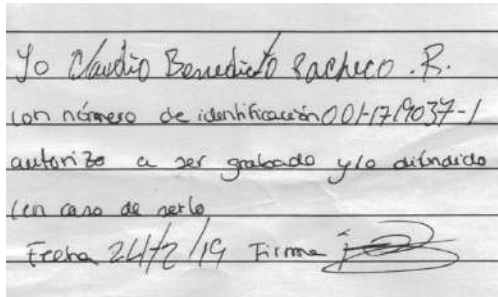 Yo Claudio Benedicto Pacheco . R.
con número de identificación 001-1719037-1
autorizo a ser grabado y/o difundido
(en caso de serlo
Fecha 24/2/19 Firma